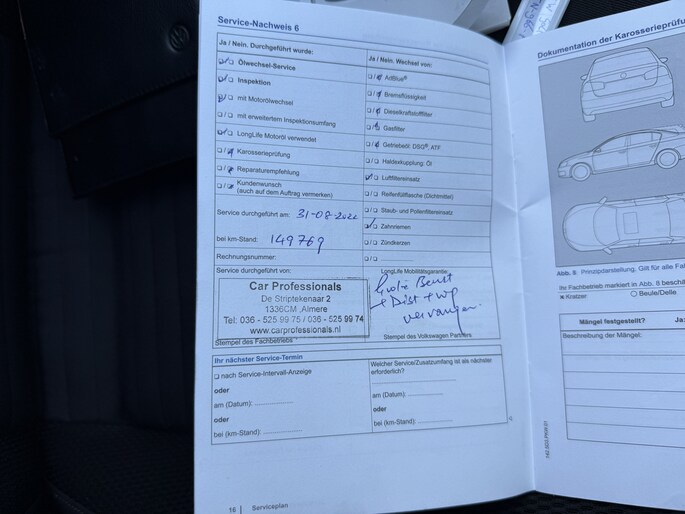 Service-Nachweis 6
Ja / Nein. Durchgeführt wurde:
Ölwechsel-Service
Inspektion
mit Motorölwechsel
mit erweitertem Inspektionsumfang
LongLife Motoröl verwendet
Karosserieprüfung
Reparaturempfehlung
Kundenwunsch
(auch auf dem Auftrag vermerken)
Service durchgeführt am: 31-08-2022
bei km-Stand: 149769
Rechnungsnummer:
Service durchgeführt von:
Car Professionals
De Striptekenaar 2
1336CM ,Almere
Tel: 036 - 525 99 75 / 036 - 525 99 74
www.carprofessionals.nl
Stempel des Fachbetriebs
Ja / Nein. Wechsel von:
AdBlue®
Bremsflüssigkeit
Dieselkraftstofffilter
Gasfilter
Getriebeöl: DSG®, ATF
Haldexkupplung: Öl
Luftfiltereinsatz
Reifenfüllflasche (Dichtmittel)
Staub- und Pollenfiltereinsatz
Zahnriemen
Zündkerzen
LongLife Mobilitätsgarantie:
Grote Beurt
+ Dist + wp
vervangen.
Stempel des Volkswagen Partners
Ihr nächster Service-Termin
nach Service-Intervall-Anzeige
oder
am (Datum):
oder
bei (km-Stand):
Welcher Service/Zusatzumfang ist als nächster
erforderlich?
am (Datum):
oder
bei (km-Stand):
16 Serviceplan
Dokumentation der Karosserieprüfu
Abb. 8 Prinzipdarstellung. Gilt für alle Fa
Ihr Fachbetrieb markiert in Abb. 8 beschä
Kratzer
Beule/Delle
Mängel festgestellt? Ja:
Beschreibung der Mängel: